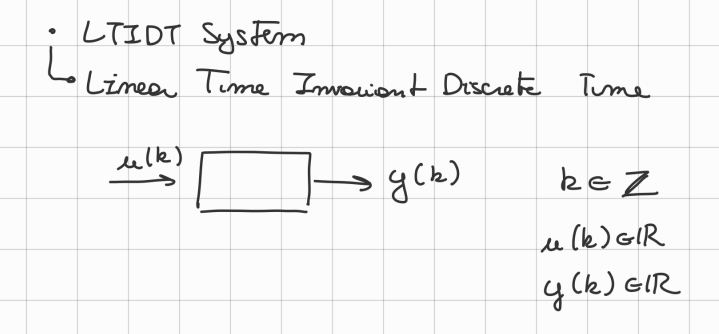 • LTIDT System
Linear Time Invariant Discrete Time
u(k)
y(k)
k ∈ ℤ
u(k) ∈ ℝ
y(k) ∈ ℝ